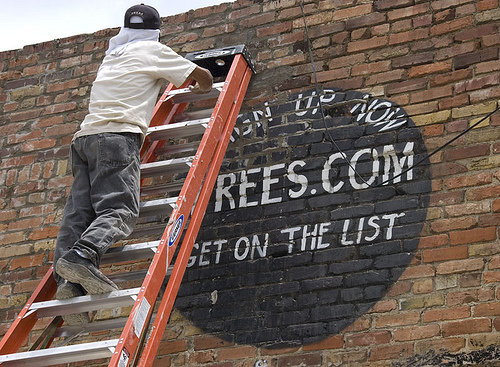 UP NOW
REES.COM
GET ON THE LIST